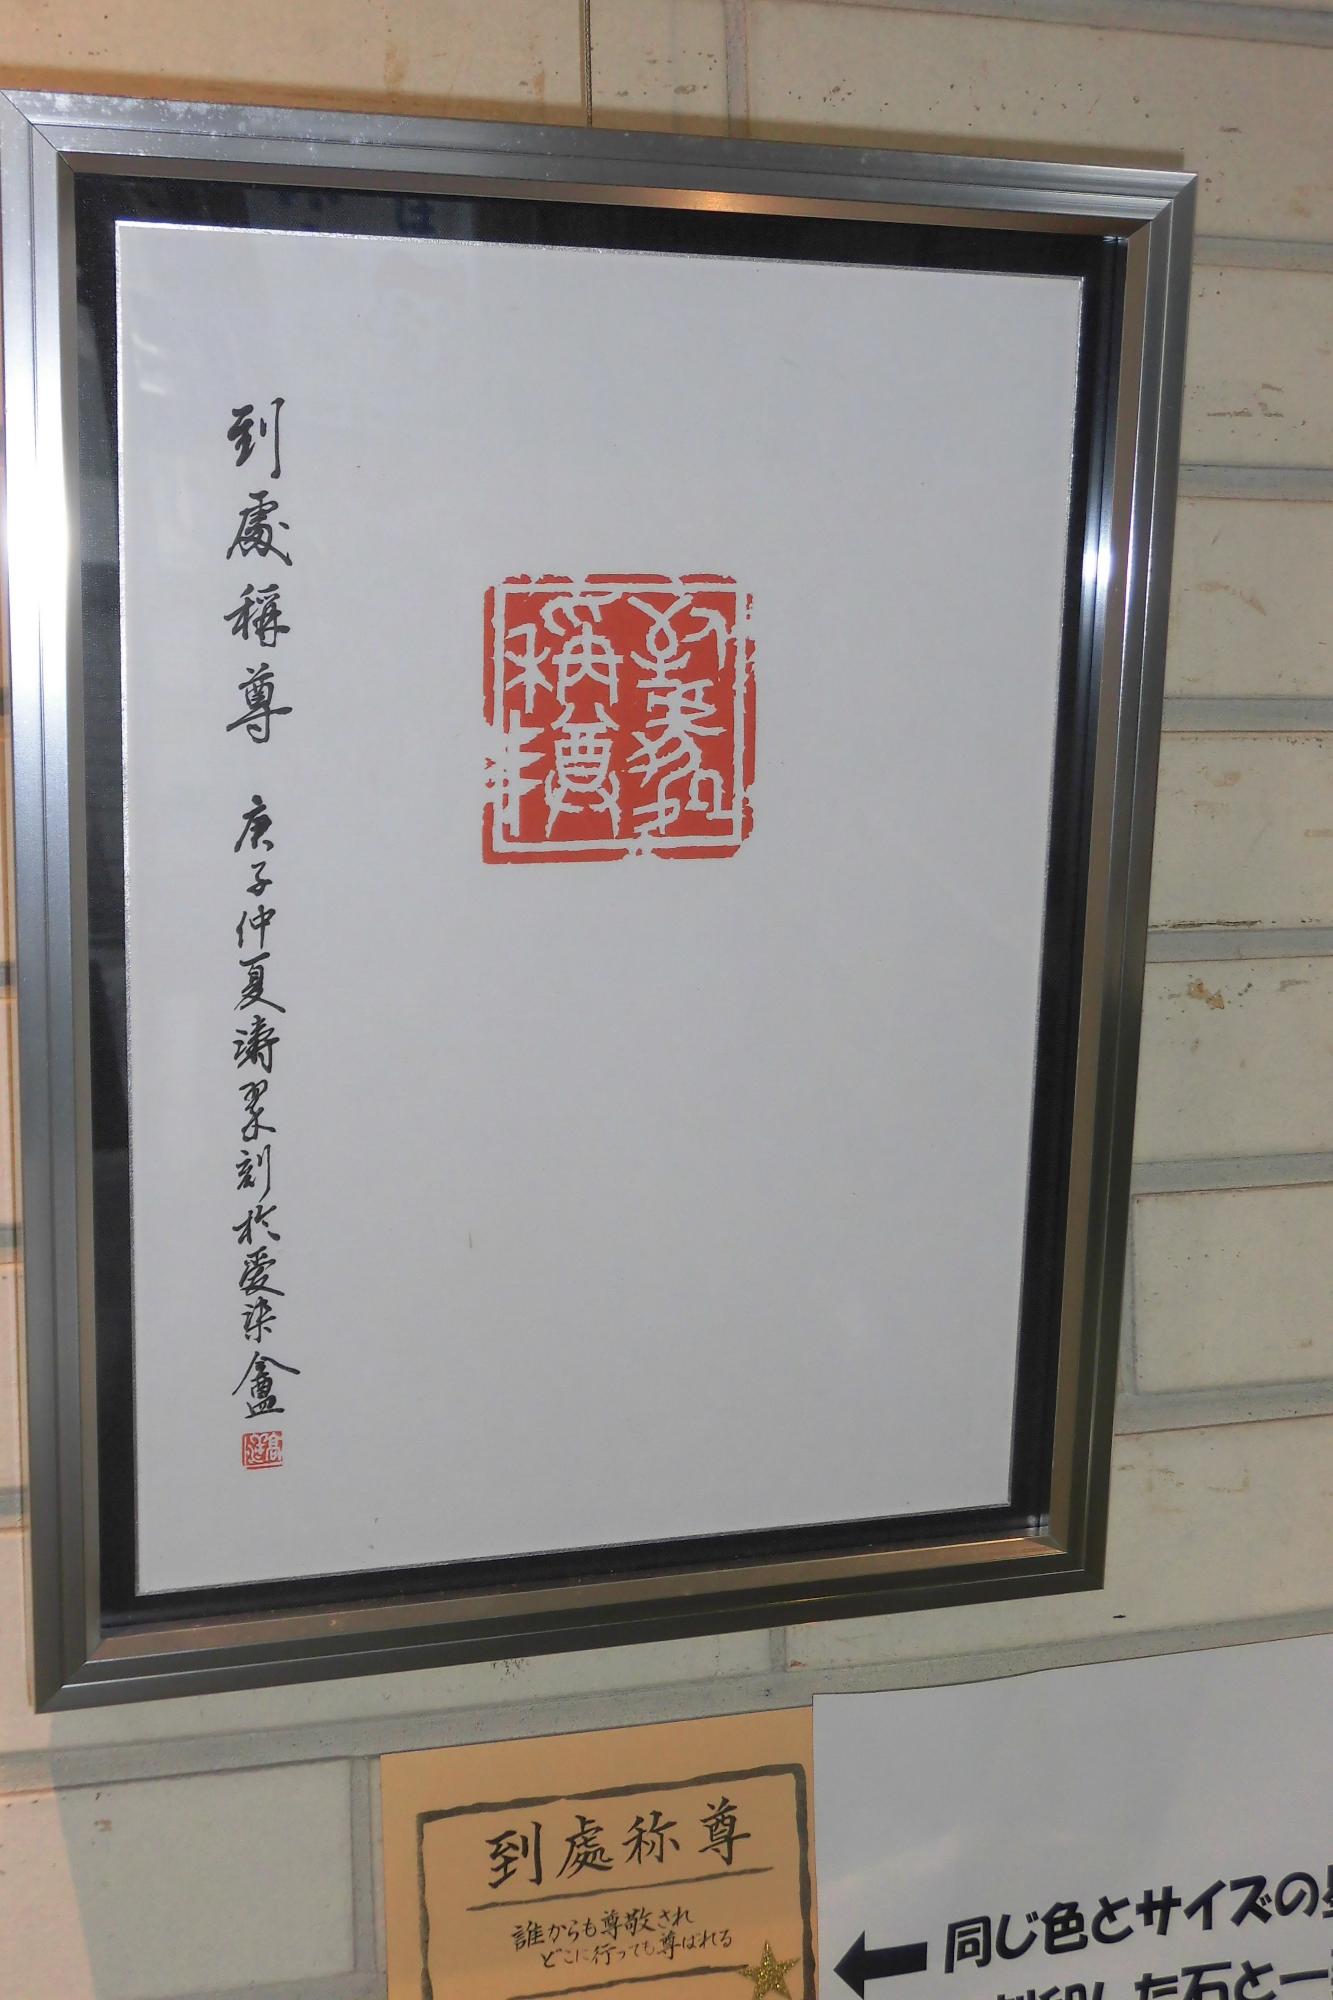 到處稱尊
到處稱尊 庚子仲夏濤翠刻於愛染盦
到處称尊
誰からも尊敬され
どこに行っても尊ばれる
←同じ色とサイズの
した石と一